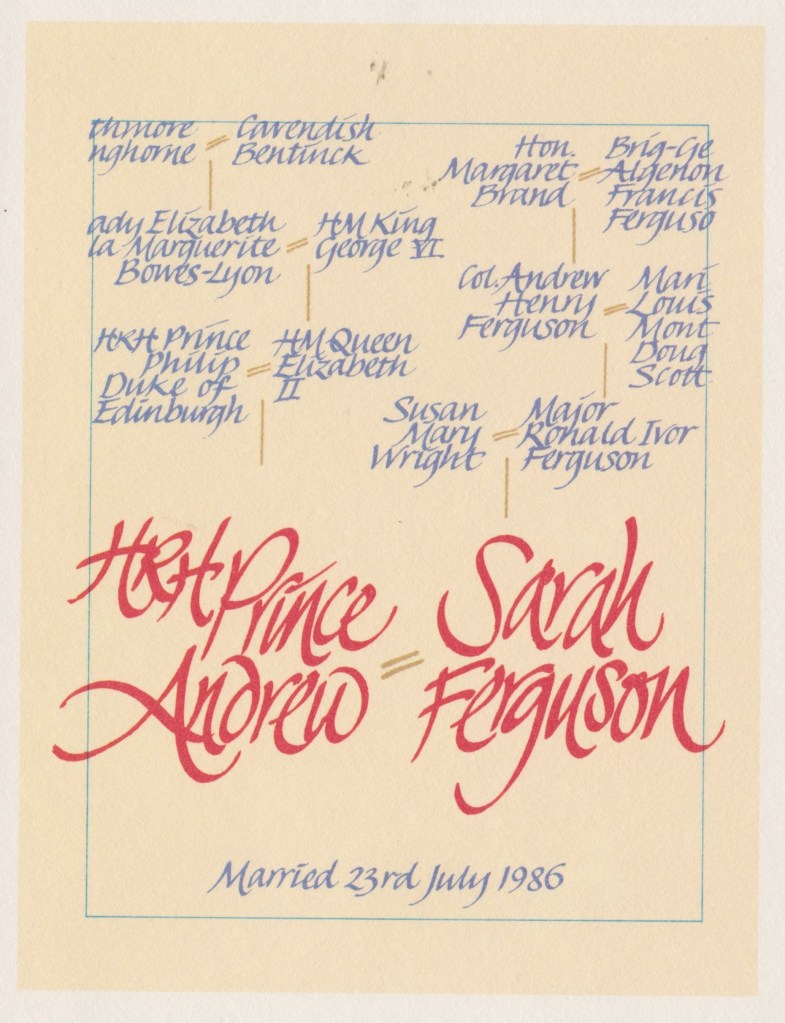 thmore
nghorne
Cavendish
Bentinck
Hon.
Margaret
Brand
Brig-Ge
Algenon
Francis
Ferguso
ady Elizabeth
la Marguerite
Bowes-Lyon
HM King
George VI
Col. Andrew
Henry
Ferguson
Mari
Louis
Mont
Doug
Scott
HRH Prince
Philip
Duke of
Edinburgh
HM Queen
Elizabeth
II
Susan
Mary
Wright
Major
Ronald Ivor
Ferguson
HRH Prince
Andrew
Sarah
Ferguson
Married 23rd July 1986